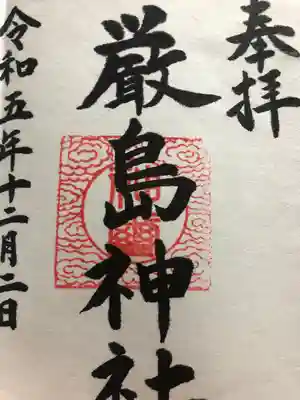 奉拝
厳島神社
令和五年十二月二日